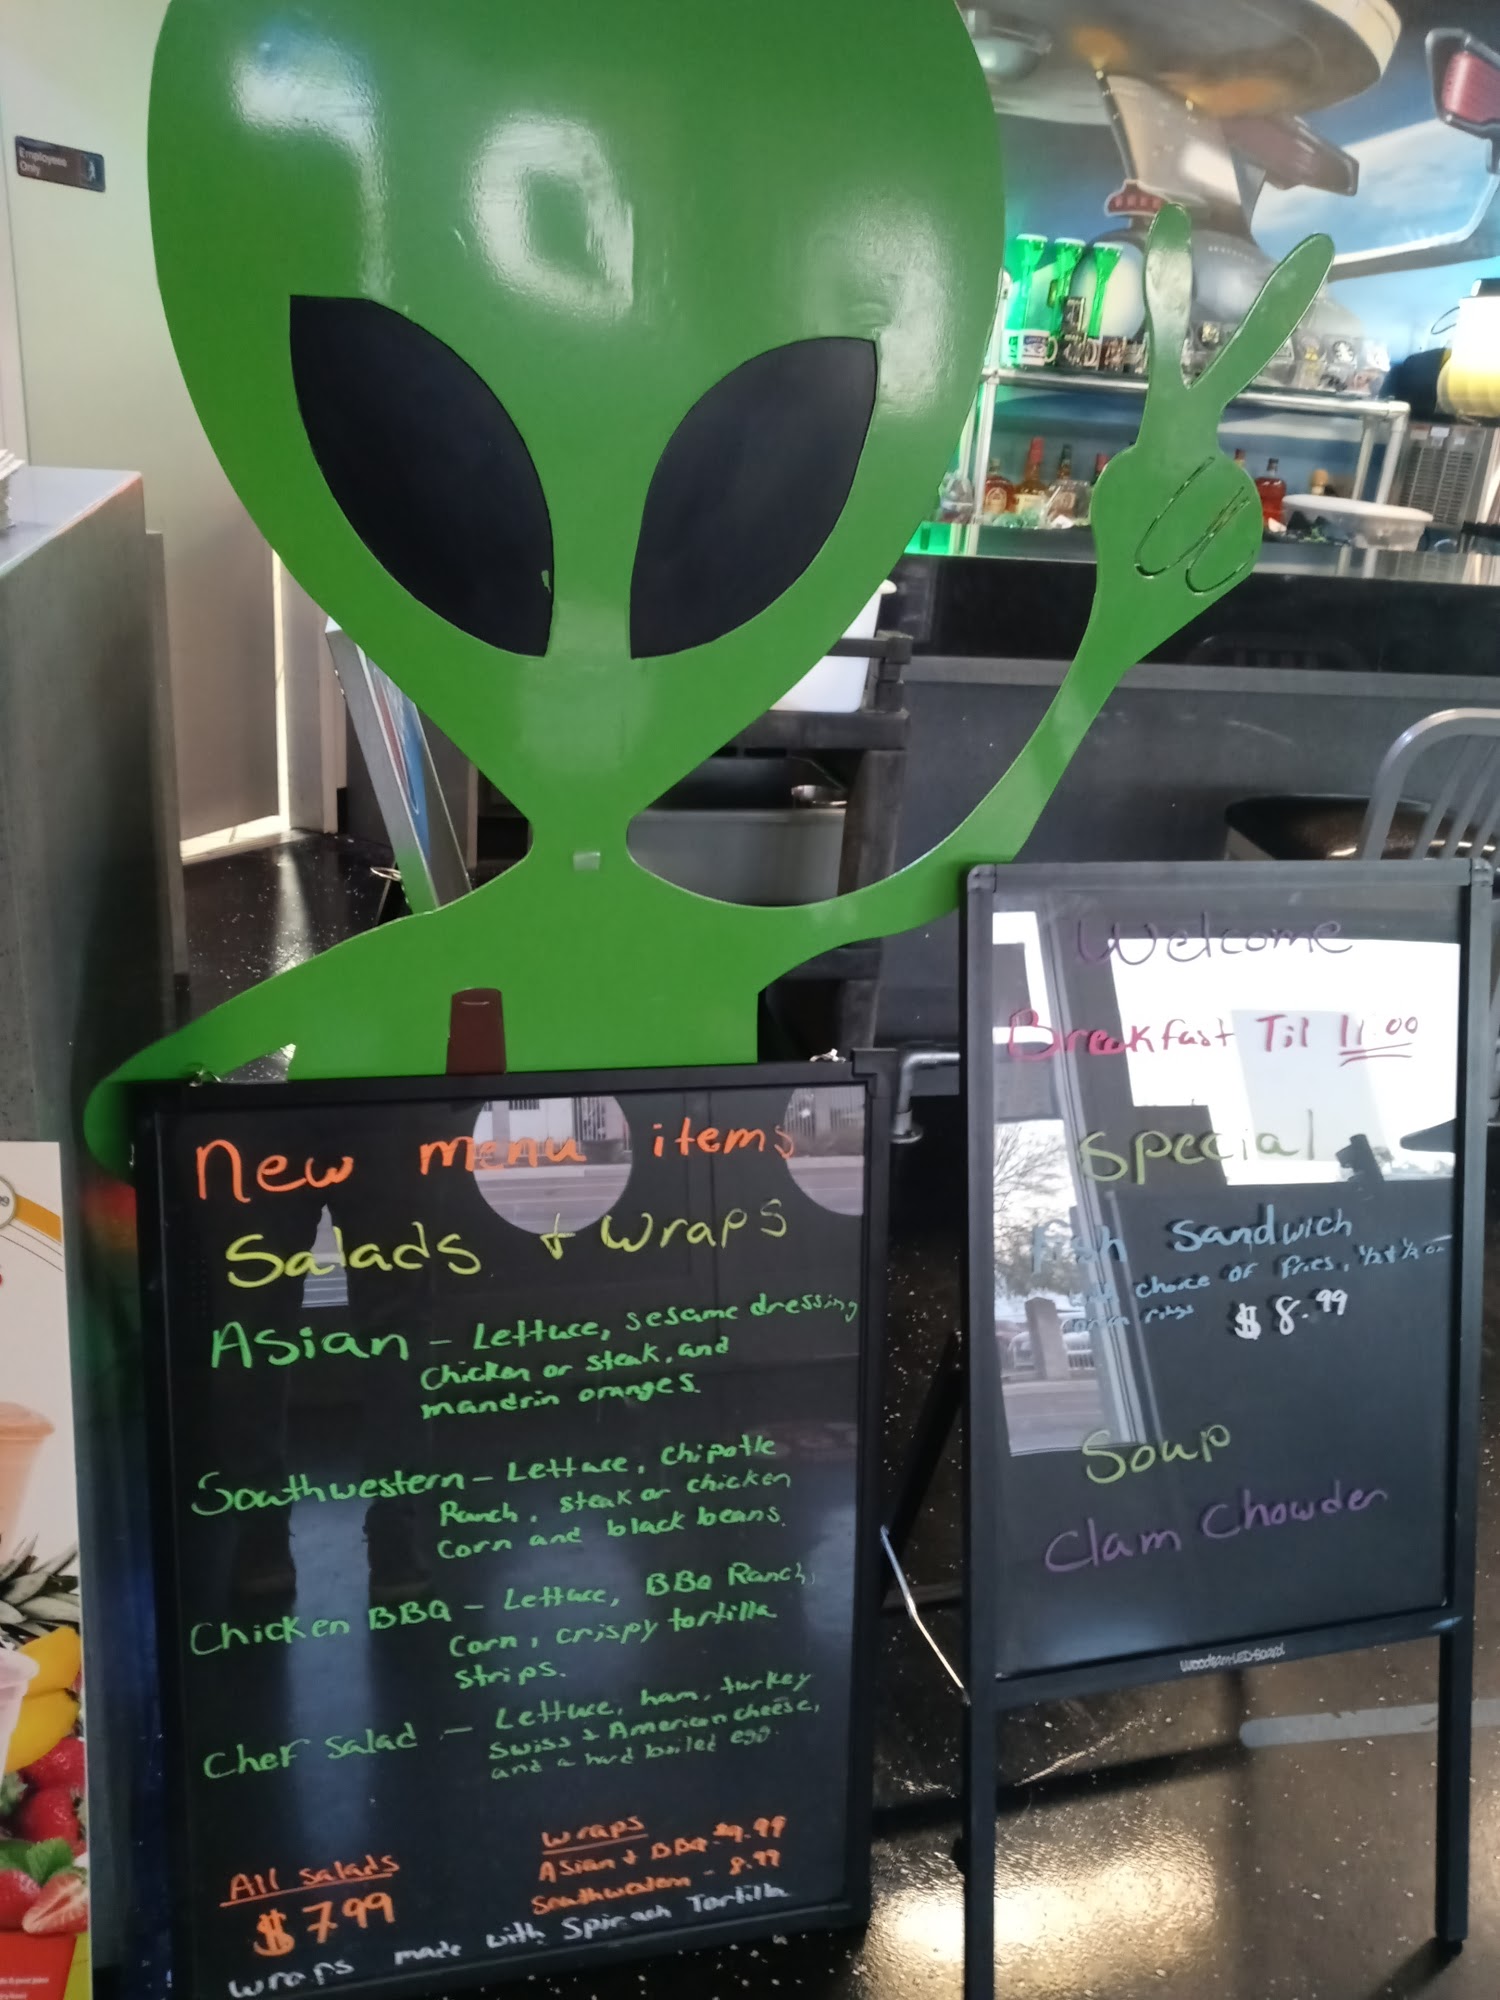 Employees
Only
New menu items
Salads & Wraps
Asian - Lettuce, sesame dressing
Chicken or steak, and
mandrin oranges.
Southwestern - Lettuce, chipotle
Ranch, steak or chicken
Corn and black beans.
Chicken BBQ - Lettuce, BBQ Ranch,
Corn, crispy tortilla
strips.
Chef Salad - Lettuce, ham, turkey
Swiss & American cheese,
and a hard boiled egg.
All Salads
$7.99
Wraps
Asian & BBQ - $9.99
Southwestern - 8.99
Wraps made with Spinach Tortilla
Welcome
Breakfast Til 11:00
Special
Fish Sandwich
choice of fries, 1/2 & 1/2 or
$8.99
Soup
Clam Chowder